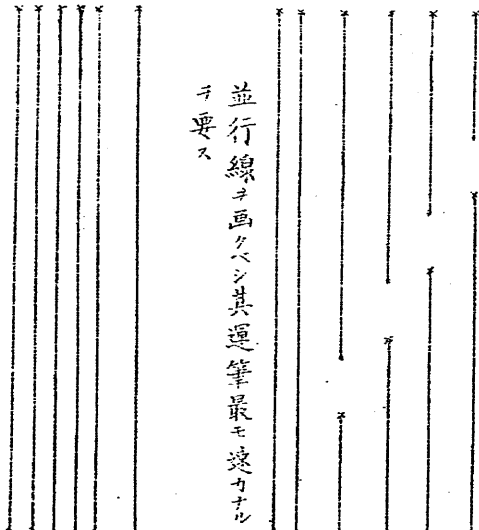 並行線ヲ画クベシ其運筆最モ速カナル
ヲ要ス